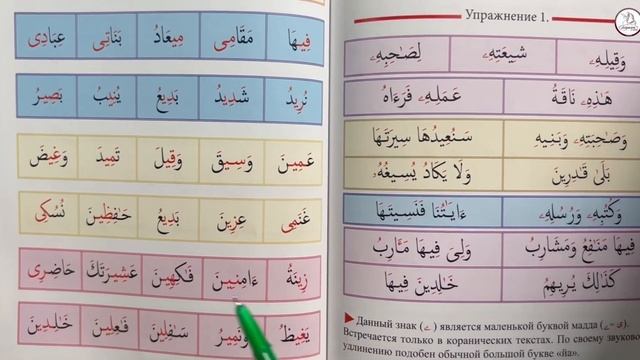 فِيهَا مَقَامِى مِيعَادُ بَنَاتِى عِبَادِى
نُرِيدُ شَدِيدُ بَدِيعُ يُنِيبُ بَصِيرُ
عَمِينَ وَسِيقَ وَقِيلَ تَمِيدَ وَغِيضَ
غَنَمِى عِزِينَ بَدِيعُ حَـٰفِظِينَ نُسُكِى
زِينَةُ ءَامِنِينَ فَـٰكِهِينَ عَشِيرَتَكَ حَاضِرِى
يَغِيظُ وَنَمِيرُ سَـٰفِلِينَ فَـٰعِلِينَ خَـٰلِدِينَ
Упражнение 1.
وَقِيلِهِۦ شِيعَتِهِۦ لِصَـٰحِبِهِۦ
هَـٰذِهِۦ نَاقَةُ عَمَلِهِۦ فَرَءَاهُ
وَصَـٰحِبَتِهِۦ وَبَنِيهِ سَنُعِيدُهَا سِيرَتَهَا
بَلَىٰ قَـٰدِرِينَ وَلَا يَكَادُ يُسِيغُهُۥ
وَكُتُبِهِۦ وَرُسُلِهِۦ ءَايَـٰتُنَا فَنَسِيتَهَا
فِيهَا مَنَـٰفِعُ وَمَشَارِبُ وَلِىَ فِيهَا مَـَٔارِبُ
كَذَٰلِكَ يُرِيهِمُ خَـٰلِدِينَ فِيهَا
► Данный знак (ے) является маленькой буквой мадда (ي-ـے).
Встречается только в коранических текстах. По своему звуково
удлинению подобен обычной большой букве «йа».